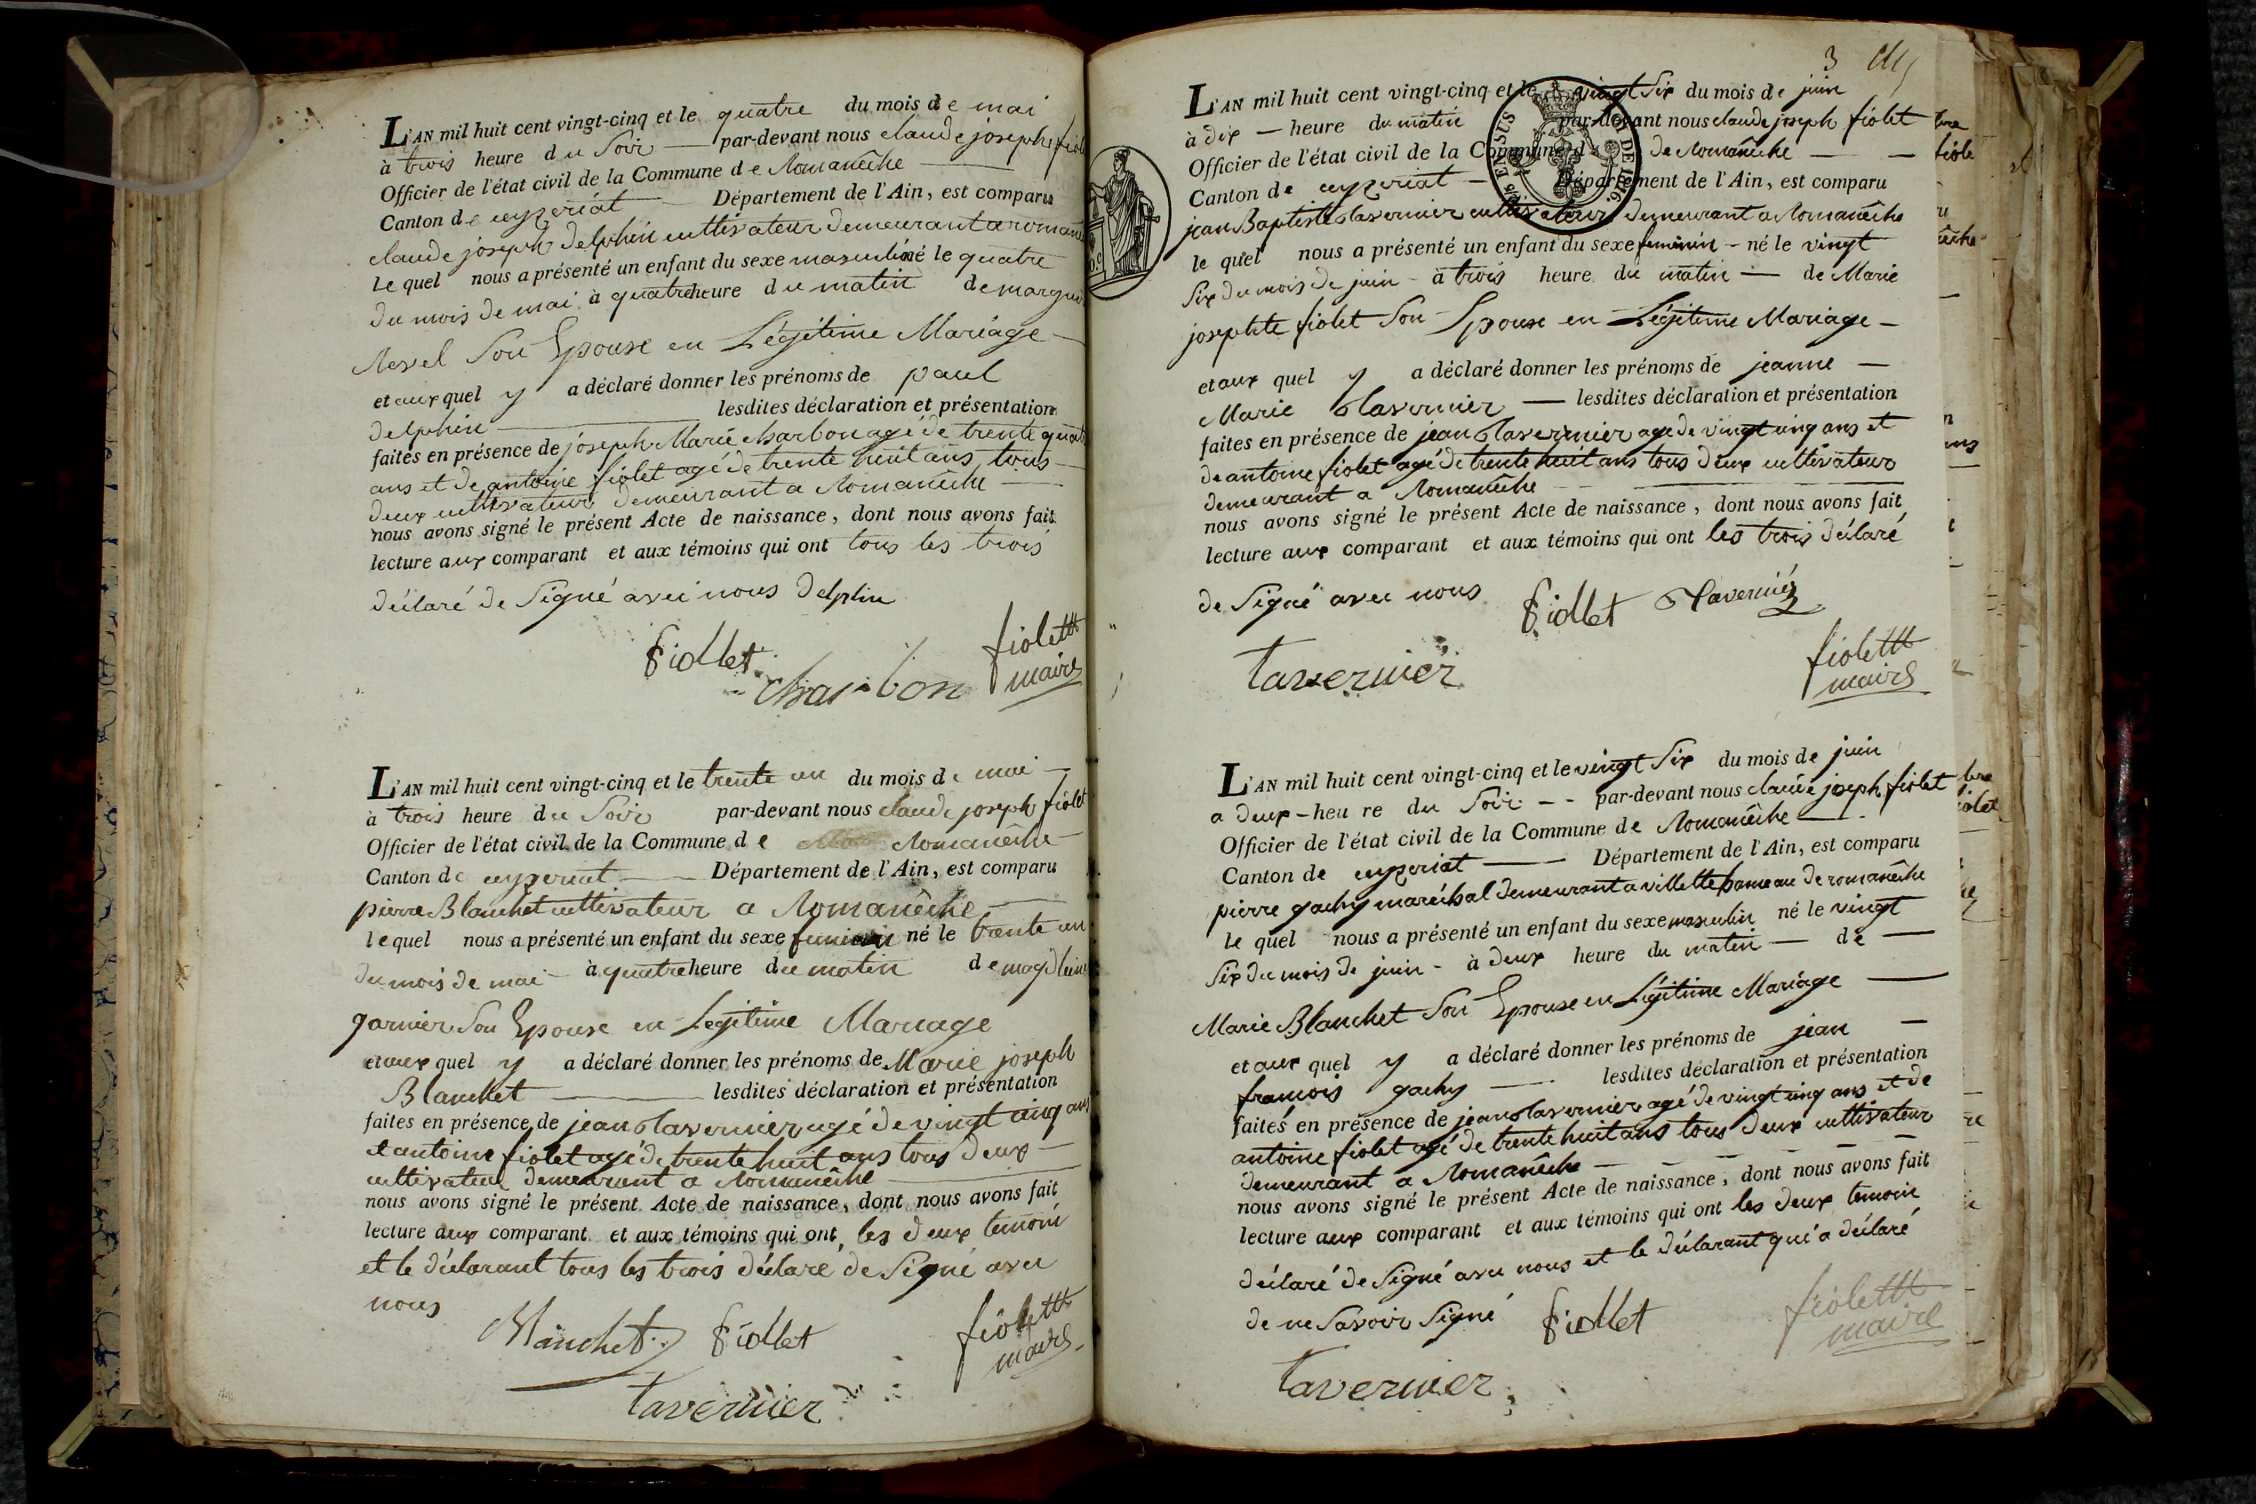 L'AN mil huit cent vingt-cinq et le quatre du mois de mai
à trois heure du Soir par-devant nous claude joseph fiolet
Officier de l'état civil de la Commune de Romanêche
Canton de ceyzeriat Département de l'Ain, est comparu
claude joseph delphin cultivateur demeurant a romanê
le quel nous a présenté un enfant du sexe masculin né le quatre
du mois de mai à quatre heure du matin de margue
Revel Son Epouse en Légitime Mariage
et aux quel y a déclaré donner les prénoms de paul
delphin lesdites déclaration et présentation
faites en présence de joseph Marie charbon agé de trente quatre
ans et de antoine fiolet agé de trente huit ans tous
deux cultivateur demeurant a Romanêche
nous avons signé le présent Acte de naissance, dont nous avons fait
lecture aux comparant et aux témoins qui ont tous les trois
déclaré de Signé avec nous Delphin
fiollet
charbon
fiolett
maire
L'AN mil huit cent vingt-cinq et le trente un du mois de mai
à trois heure du Soir par-devant nous claude joseph fiolet
Officier de l'état civil de la Commune de Romanêche
Canton de ceyzeriat Département de l'Ain, est comparu
pierre Blanchet cultivateur a Romanêche
le quel nous a présenté un enfant du sexe feminin né le trente un
du mois de mai à quatre heure du matin de magdleine
garnier Son Epouse en Legitime Mariage
et aux quel y a déclaré donner les prénoms de Marie joseph
Blanchet lesdites déclaration et présentation
faites en présence de jean tavernier agé de vingt cinq ans
et antoine fiolet agé de trente huit ans tous deux
cultivateur demeurant a Romanêche
nous avons signé le présent Acte de naissance, dont nous avons fait
lecture aux comparant et aux témoins qui ont les deux temoin
et le déclarant tous les trois déclaré de Signé avec
nous
Blanchet fiollet
fiolett
maire
tavernier
3
L'AN mil huit cent vingt-cinq et le vingt Six du mois de juin
à dix heure du matin par-devant nous claude joseph fiolet
Officier de l'état civil de la Commune de de Romanêche
Canton de ceyzeriat Département de l'Ain, est comparu
jean Baptiste tavernier cultivateur demeurant a Romanêche
le quel nous a présenté un enfant du sexe feminin né le vingt
Six du mois de juin à trois heure du matin de Marie
josephte fiolet Son Epouse en Légitime Mariage
et aux quel y a déclaré donner les prénoms de jeanne
Marie tavernier lesdites déclaration et présentation
faites en présence de jean tavernier agé de vingt cinq ans et
de antoine fiolet agé de trente huit ans tous deux cultivateur
demeurant a Romanêche
nous avons signé le présent Acte de naissance, dont nous avons fait
lecture aux comparant et aux témoins qui ont les trois déclaré
de Signé avec nous fiollet Taverniéz
tavernier
fiolett
maire
L'AN mil huit cent vingt-cinq et le vingt Six du mois de juin
a deux heure du Soir par-devant nous claude joseph fiolet
Officier de l'état civil de la Commune de Romanêche
Canton de ceyzeriat Département de l'Ain, est comparu
pierre gachy maréchal demeurant a villette hameau de romanêche
le quel nous a présenté un enfant du sexe masculin né le vingt
Six du mois de juin à deux heure du matin de
Marie Blanchet Son Epouse en Légitime Mariage
et aux quel y a déclaré donner les prénoms de jean
francois gachy lesdites déclaration et présentation
faites en présence de jean tavernier agé de vingt cinq ans et de
antoine fiolet agé de trente huit ans tous deux cultivateur
demeurant a Romanêche
nous avons signé le présent Acte de naissance, dont nous avons fait
lecture aux comparant et aux témoins qui ont les deux temoin
déclaré de Signé avec nous et le déclarant qui a déclaré
de ne Savoir Signé fiollet
fiolett
maire
tavernier